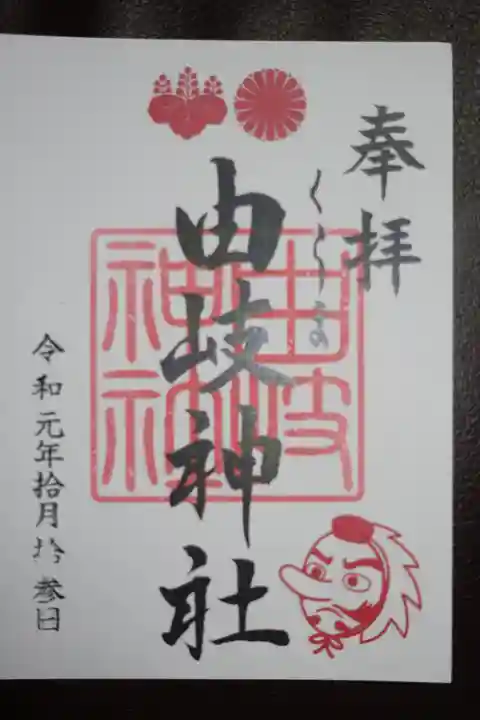 奉拝
くらまの
由岐神社
由岐神社
令和元年拾月拾参日